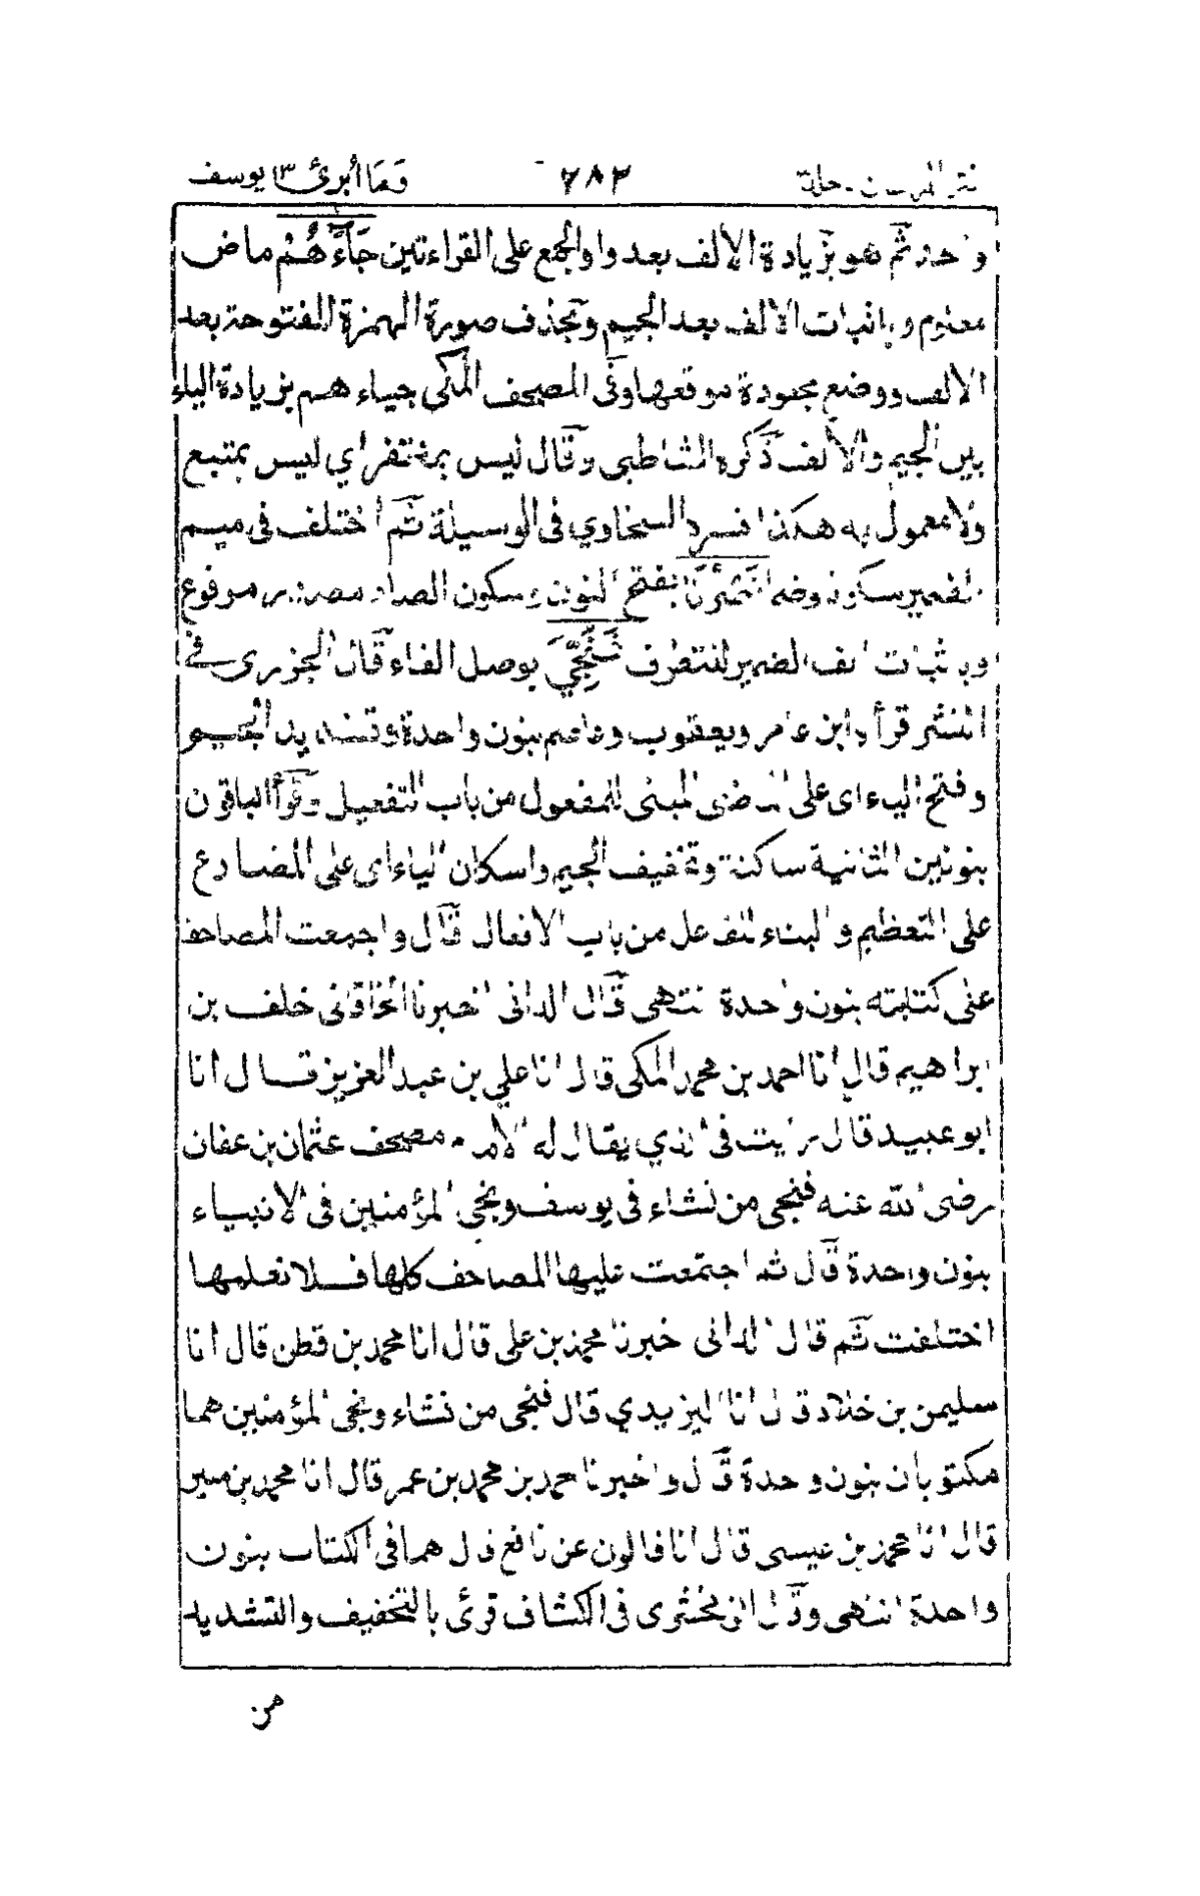 نثر المرجان - جلد ٧٨٢ وَمَا أُبرئ ١٣ يوسف
واحد ثم هو بزيادة الالف بعد واو الجمع على القراءتين جَاءَهُمْ ماض
معلوم وباثبات الالف بعد الجيم وبحذف صورة الهمزة المفتوحة بعد
الالف ووضع مجعودة موقعها وفى المصحف المكى جياءهم بزيادة الياء
بين الجيم والالف ذكره الشاطبى وقال ليس بمقتفر اي ليس بمتبع
ولا معمول به هكذا فسره السخاوي فى الوسيلة ثم اختلف فى ميم
الضمير سكونا وضما نَصْرُنَا بفتح النون وسكون الصاد مصدر مرفوع
وباثبات الف الضمير للتطرف فَنُجِّيَ بوصل الفاء قال الجزرى فى
النشر قرأ ابن عامر ويعقوب وعاصم بنون واحدة وتشديد الجيم
وفتح الياء اى على الماضى المبنى للمفعول من باب التفعيل وقرأ الباقون
بنونين الثانية ساكنة وتخفيف الجيم واسكان الياء اى على المضارع
على التعظيم والبناء للفاعل من باب الافعال قال واجمعت المصاحف
على كتابته بنون واحدة انتهى قال الدانى اخبرنا الخاقانى خلف بن
ابراهيم قال انا احمد بن محمد المكى قال انا علي بن عبد العزيز قال انا
ابو عبيد قال رايت فى الذي يقال له الامام مصحف عثمان بن عفان
رضى الله عنه فنجى من نشاء فى يوسف ونجي المؤمنين فى الانبياء
بنون واحدة قال ثم اجتمعت عليها المصاحف كلها فلا نعلمها
اختلفت ثم قال الدانى اخبرنا محمد بن على قال انا محمد بن قطن قال انا
سليمن بن خلاد قال انا اليزيدي قال فنجى من نشاء ونجى المؤمنين هما
مكتوبان بنون واحدة قال واخبرنا احمد بن محمد بن عمر قال انا محمد بن منير
قال انا محمد بن عيسى قال انا قالون عن نافع قال هما فى الكتاب بنون
واحدة انتهى وقال الزمخشرى فى الكشاف قرئ بالتخفيف والتشديد
من